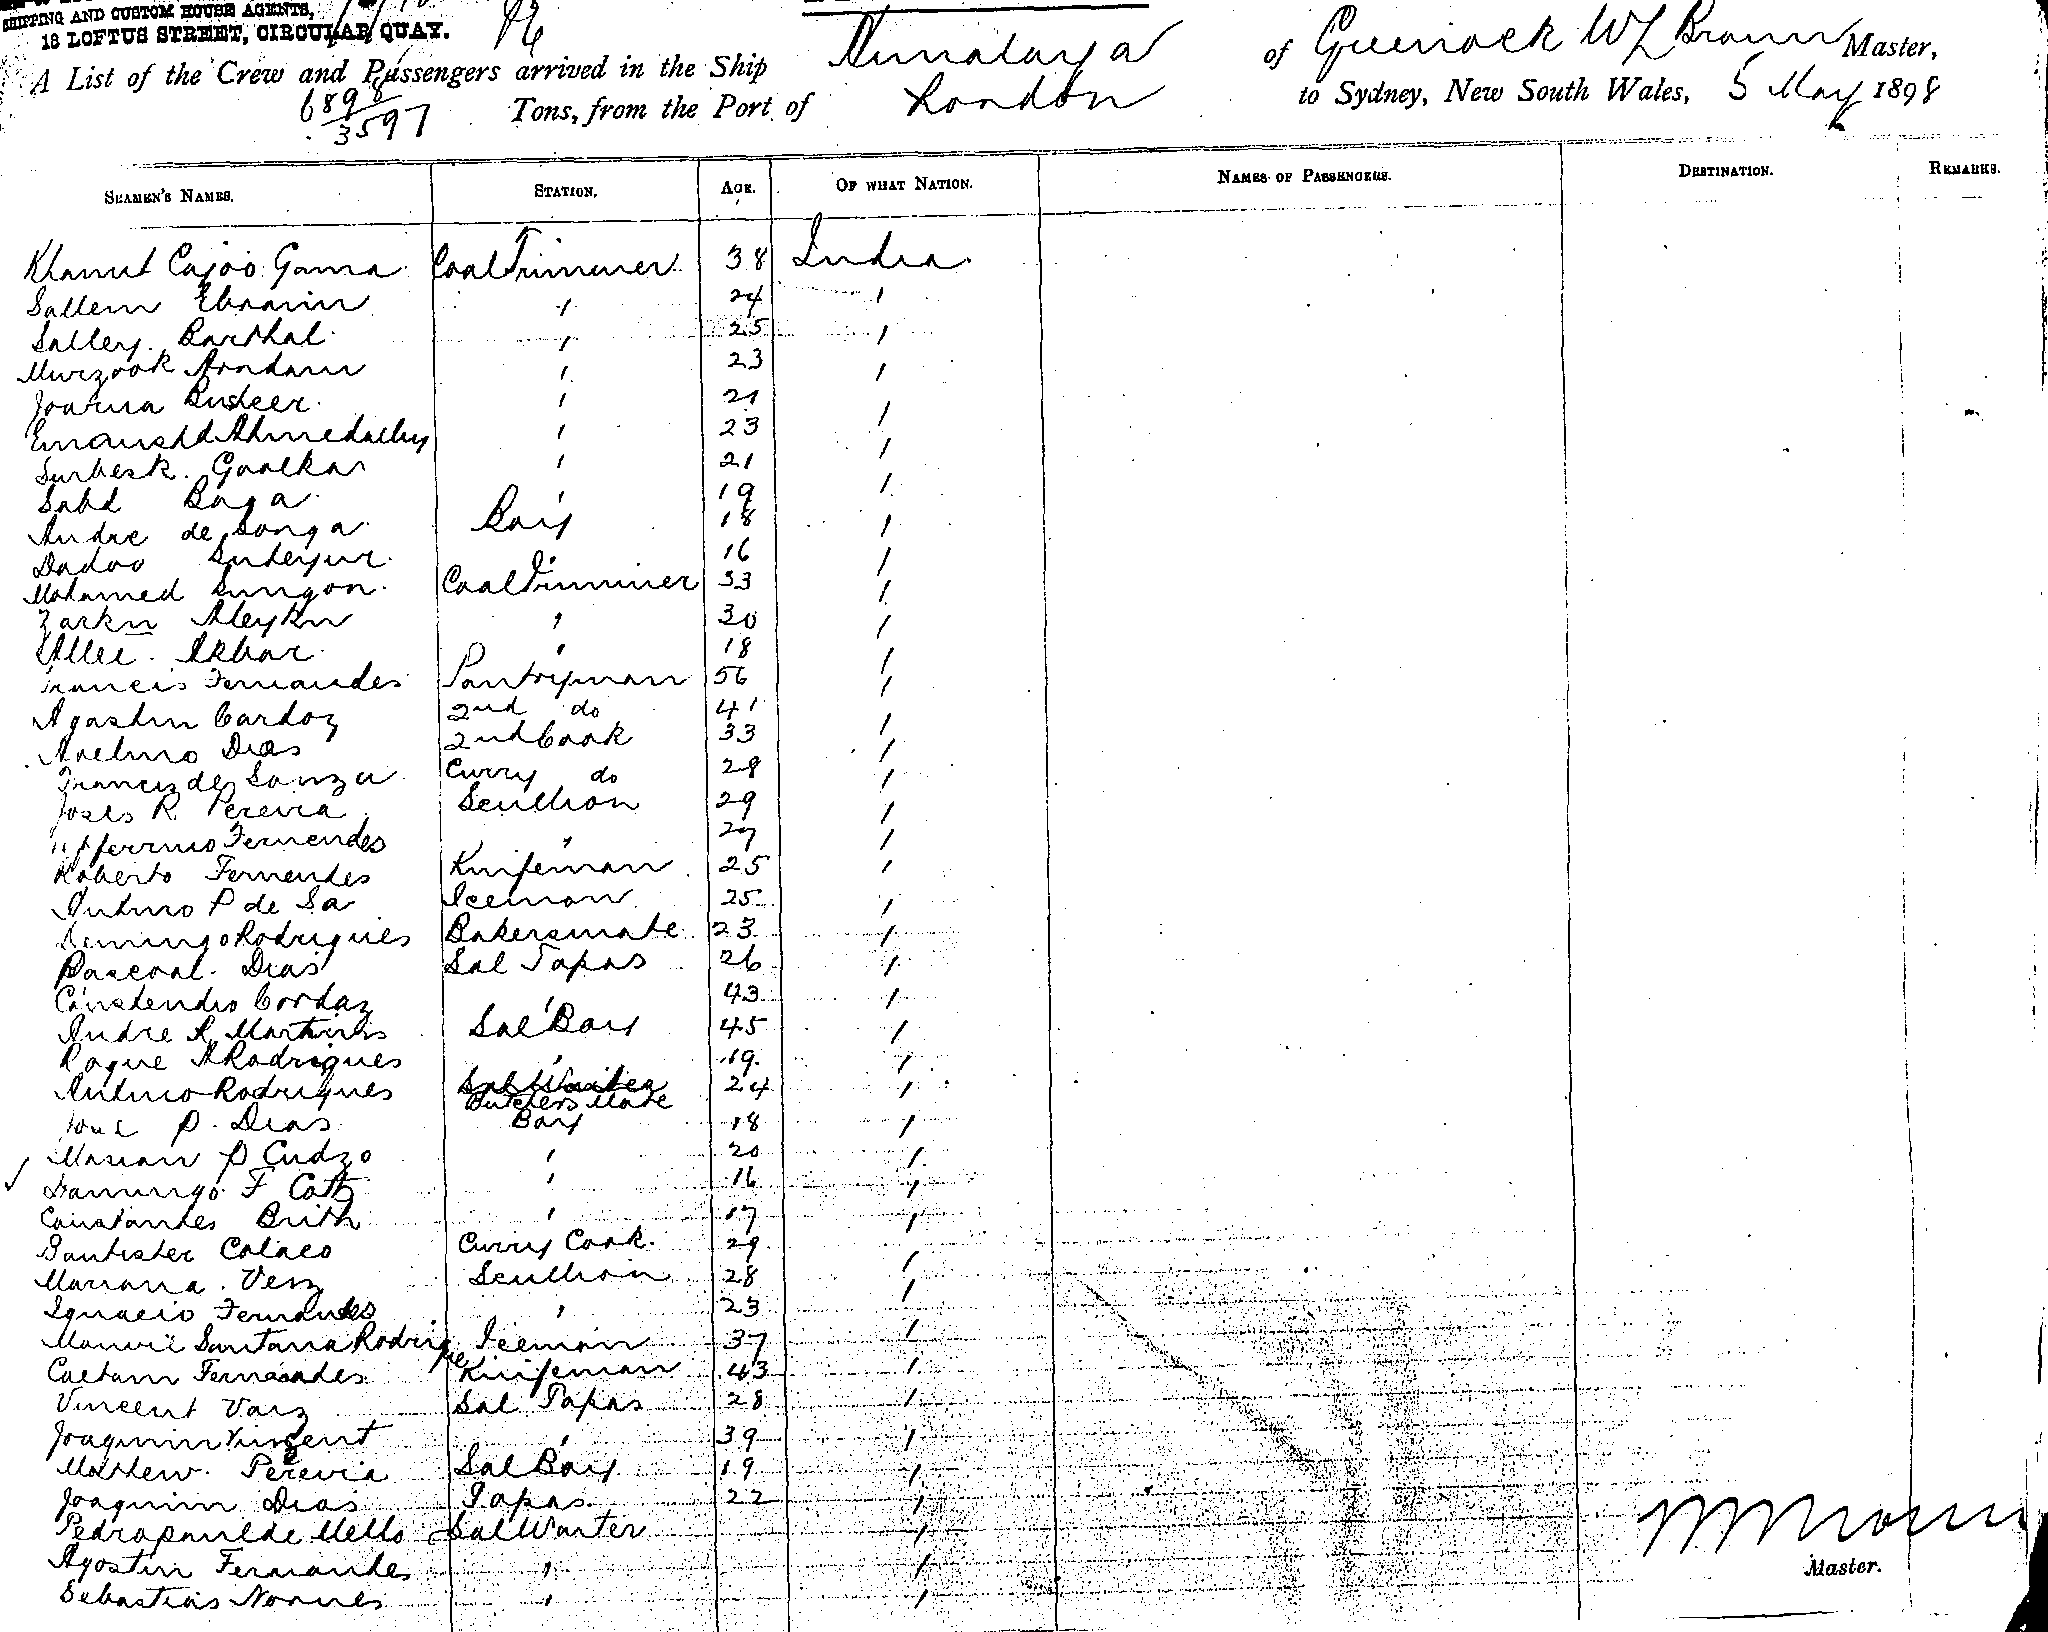 SHIPPING AND CUSTOM HOUSE AGENTS,
18 LOFTUS STREET, CIRCULAR QUAY.
A List of the Crew and Passengers arrived in the Ship Himalaya of Greenock W L Brown Master,
6898
3597 Tons, from the Port of London to Sydney, New South Wales, 5 May 1898
SEAMEN'S NAMES. STATION. AGE. OF WHAT NATION. NAMES OF PASSENGERS. DESTINATION. REMARKS.
Khamut Cajoo Gama Coal Trimmer 38 India
Sallem Ebraim " 24 "
Salley Barthal " 25 "
Murzook " 23 "
Joarna Budeer " 21 "
Ahmedalley " 23 "
Surbesk Goolkar " 21 "
Sabd Baga " 19 "
Andre de Songa Boy 18 "
Dadoo " 16 "
Mohamed Sungon Coal Trimmer 33 "
Zarkn Aleykn " 30 "
Allee Akbar " 18 "
Francis Fernandes Pantryman 56 "
Agastin Cardoz 2nd do 41 "
Avelino Dias 2nd Cook 33 "
Francis de Sonza Curry do 28 "
Joses R Pereira Scullion 29 "
Fernendes " 27 "
Roberto Fernendes Knifeman 25 "
Antino P de Sa Iceman 25 "
Domingo Rodrigues Bakersmate 23 "
Pascoal Dias Sal Topas 26 "
Constendio Cordaz " 43 "
Andre R Martinis Sal Boy 45 "
Roque A Rodrigues " 19 "
Antino Rodrigues Butchers Mate 24 "
P. Dias Boy 18 "
Marian P Cudzo " 20 "
Domingo F Cotz " 16 "
Constantes Brith " 17 "
Bautister Colaco Curry Cook 29 "
Mariana Verz Scullion 28 "
Ignacio Fernandes " 23
Manvil Santana Rodrigue Iceman 37 "
Caetam Fernandes Knifeman 43 "
Vincent Varz Sal Topas 28 "
Joaquim Vincent " 39 "
Mathew Pereira Sal Boy 19 "
Joaquim Dias Topas 22 "
Pedropaulde Mello Sal Waiter "
Agostin Fernandes " "
Sebastias Noones " "
Master.